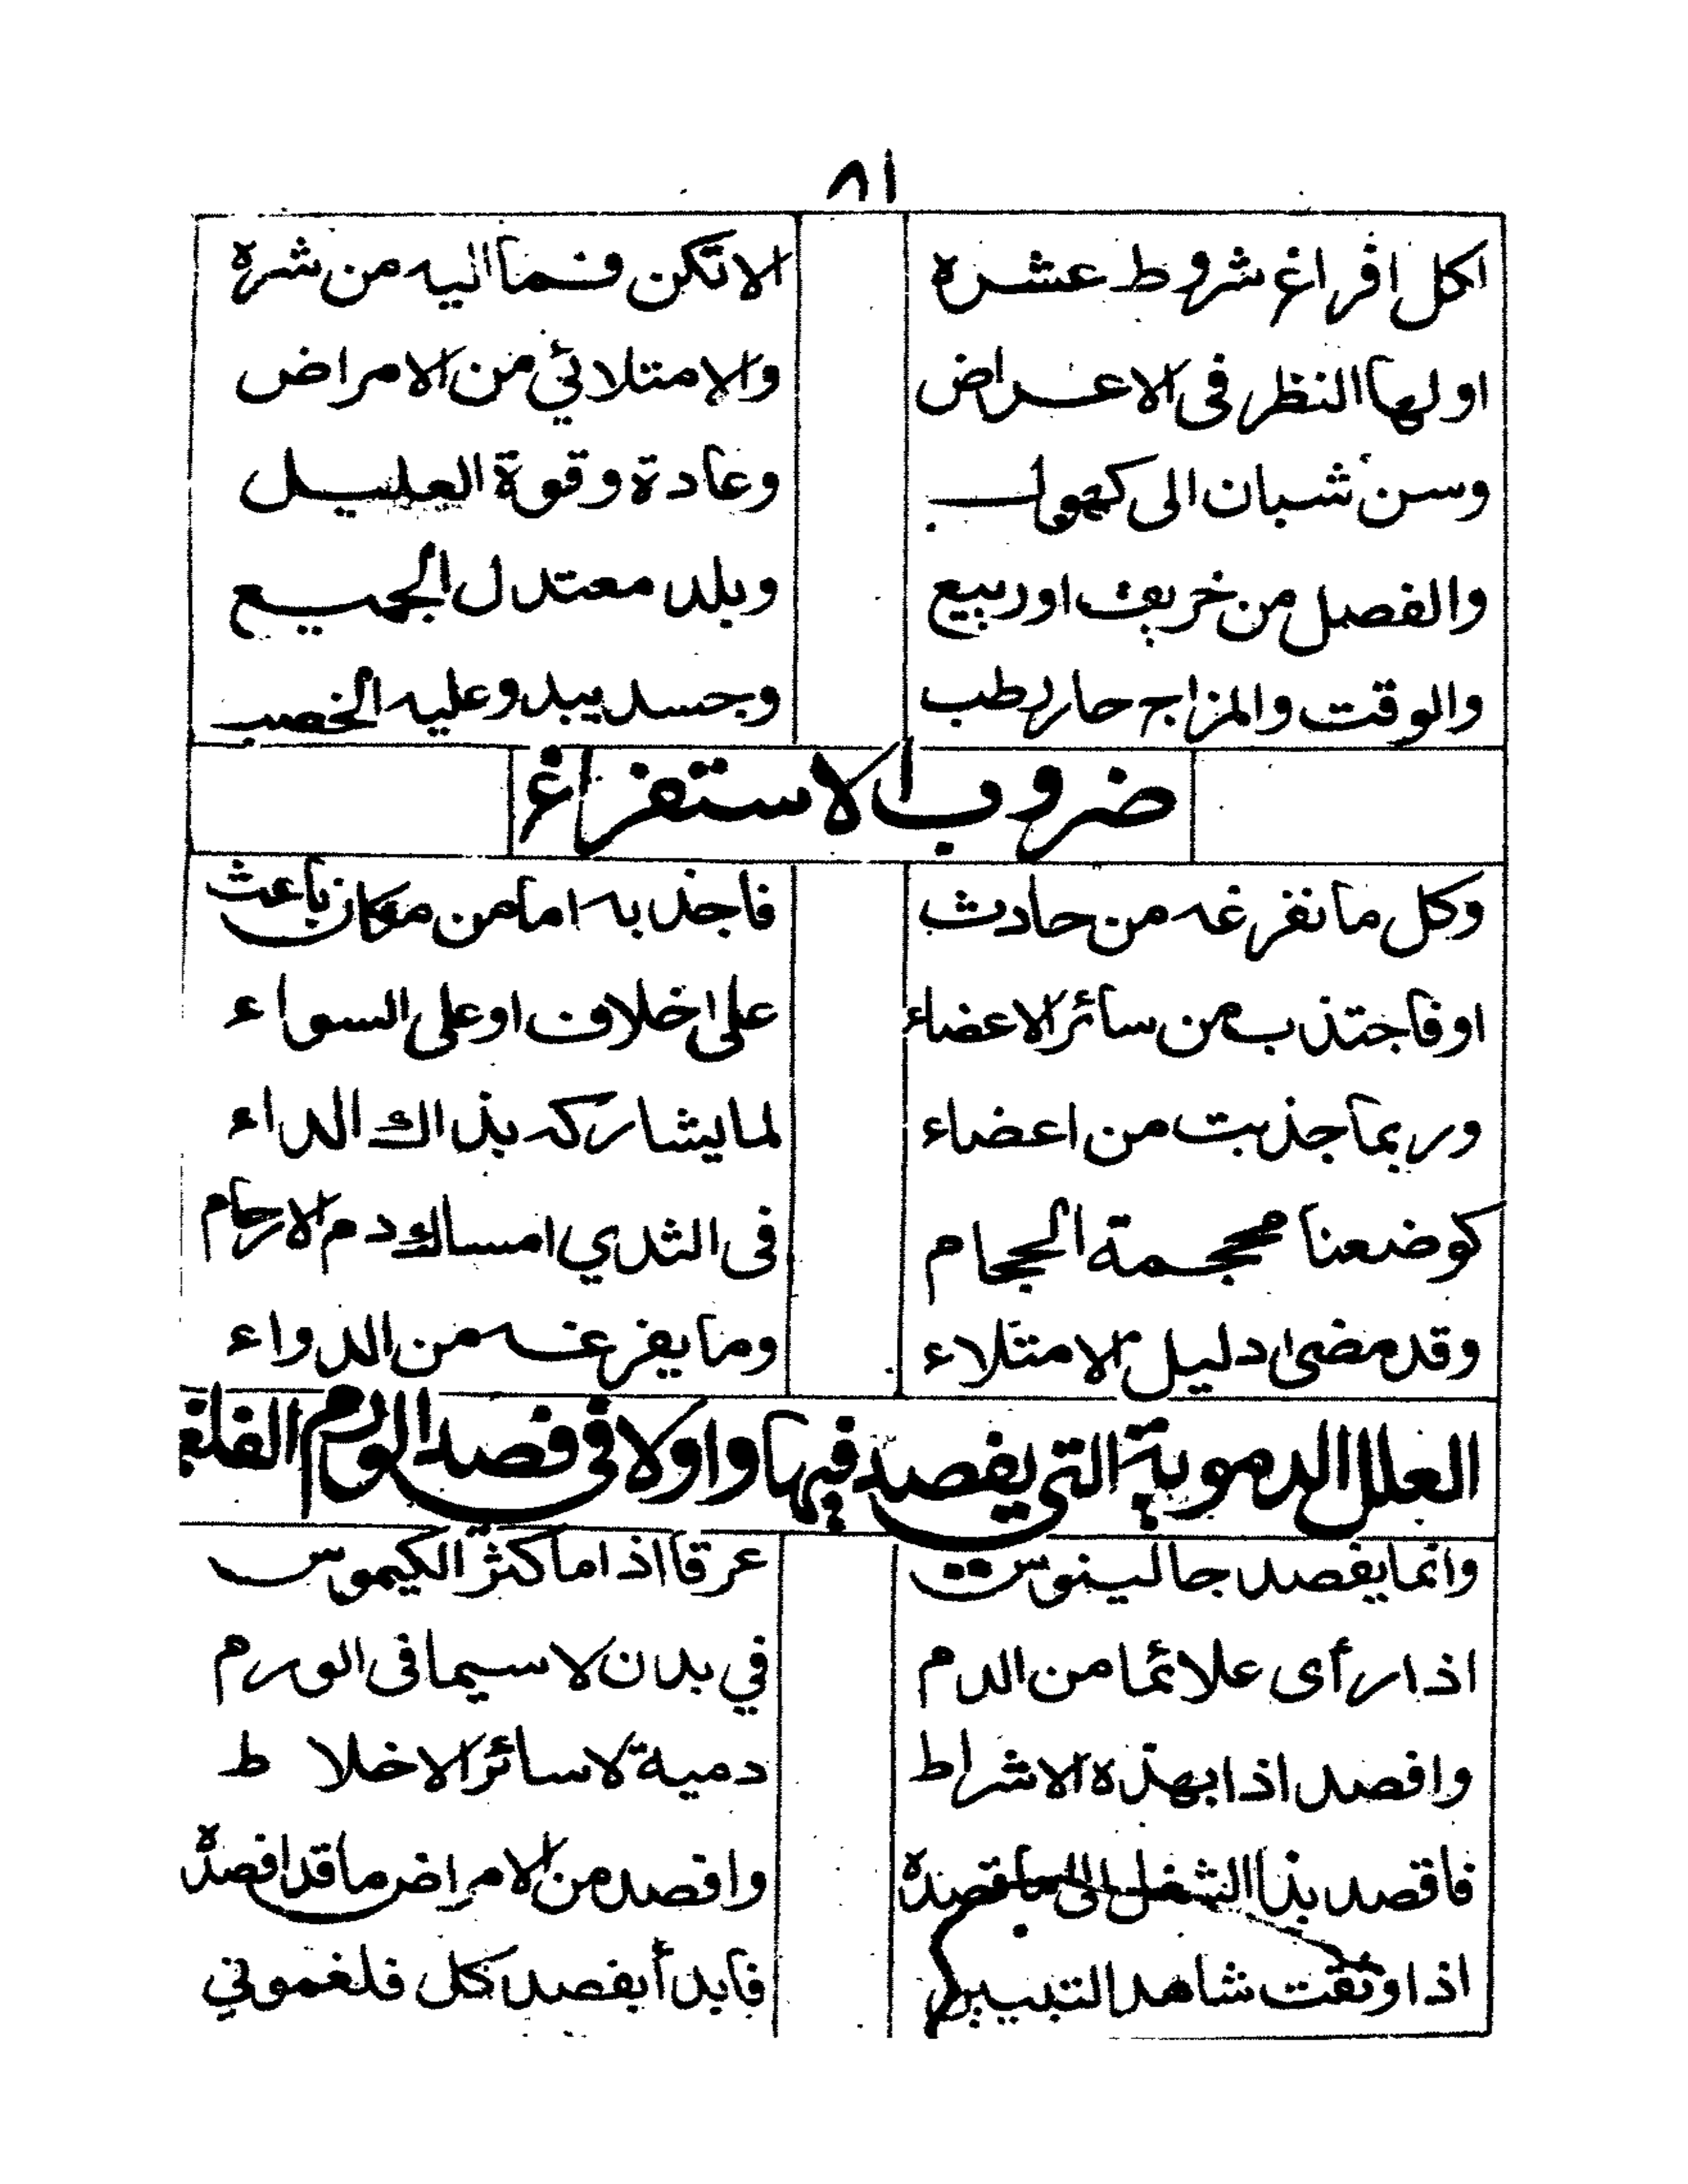 ٨١
اكل افراغ شروط عشره الا تكن فما اليه من شره
اولها النظر فى الاعراض والامتلائي من الامراض
وسن شبان الى كهول وعادة وقوة العليل
والفصل من خريف او ربيع وبلد معتدل الجميع
والوقت والمزاج حار رطب وجسد يبدو عليه الخصب
ضروب الاستفراغ
وكل ما نفرغه من حادث فاجذبه اما من مكان باعث
او فاجتذب من سائر الاعضاء على اخلاف او على السواء
وربما جذبت من اعضاء لما يشاركه بذاك الداء
كوضعنا محجمة الحجام فى الثدي امساك دم الارحام
وقد مضى دليل الامتلاء وما يفرغه من الدواء
العلل الدموية التى يفصد فيها واولا فى فصد الورم الفلغ
وانما يفصد جالينوس عرقا اذا ما كثر الكيموس
اذا رأى علائما من الدم في بدن لا سيما فى الورم
وافصد اذا بهذه الاشراط دمية لا سائر الاخلاط
فاقصد بذا الشغل الى ما قصده وافصد من الامراض ما قد افصده
اذا وثقت شاهد التدبير فابدأ بفصد كل فلغموني